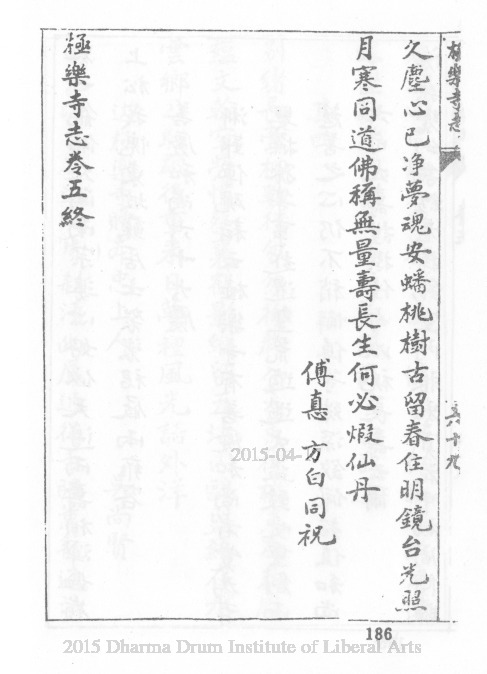 極樂寺志
六十九
久塵心已净夢魂安蟠桃樹古留春住明鏡台光照
月寒同道佛稱無量壽長生何必煅仙丹
傅惪 方白同祝
極樂寺志卷五終
2015-04-
186
2015 Dharma Drum Institute of Liberal Arts